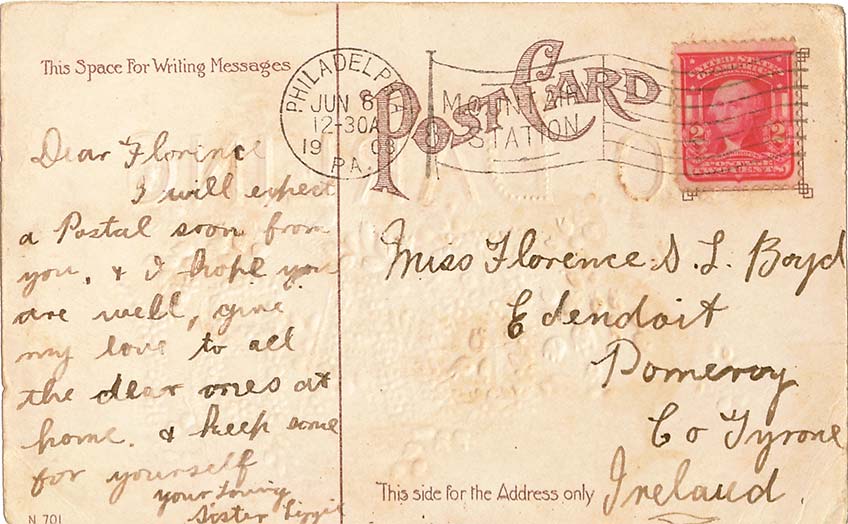 This Space For Writing Messages
PHILADELPHIA
JUN 6
12-30A
1908
PA.
MOUNT AIR
STATION
POST CARD
UNITED STATES
OF AMERICA
2 2
POSTAGE
TWO CENTS
Dear Florence
I will expect
a Postal soon from
you, & I hope you
are well, give
my love to all
the dear ones at
home. & keep some
for yourself
your loving
Sister Lizzie
Miss Florence S. L. Boyd
Edendoit
Pomeroy
Co Tyrone
Ireland.
This side for the Address only
N 701